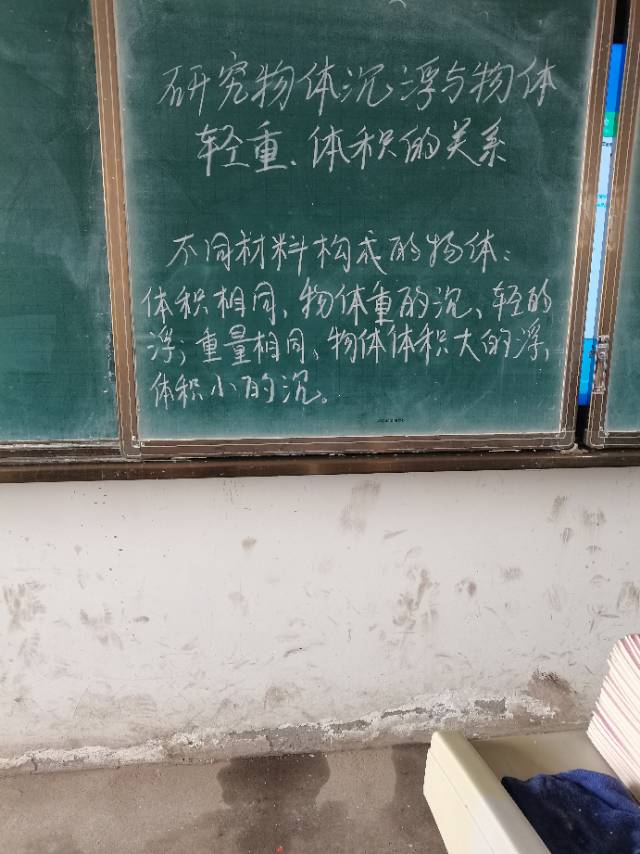 研究物体沉浮与物体
轻重、体积的关系
不同材料构成的物体：
体积相同、物体重的沉、轻的
浮；重量相同、物体体积大的浮，
体积小的沉。